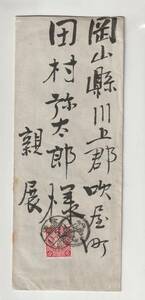 岡山縣川上郡吹屋町
田村弥太郎様
親展